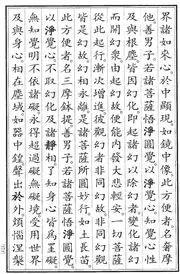 界諸如來心於中顯現如鏡中像此方便者名奢摩
他善男子若諸菩薩悟淨圓覺以淨覺心知覺心性
及與根塵皆因幻化即起諸幻以除幻者變化諸幻
而開幻眾由起幻故便能內發大悲輕安一切菩薩
從此起行漸次增進彼觀幻者非同幻故非同幻觀
皆是幻故幻相永離是諸菩薩所圓妙行如土長苗
此方便者名三摩鉢提善男子若諸菩薩悟淨圓覺
以淨覺心不取幻化及諸靜相了知身心皆為罣礙
無知覺明不依諸礙永得超過礙無礙境受用世界
及與身心相在塵域如器中鍠聲出於外煩惱涅槃